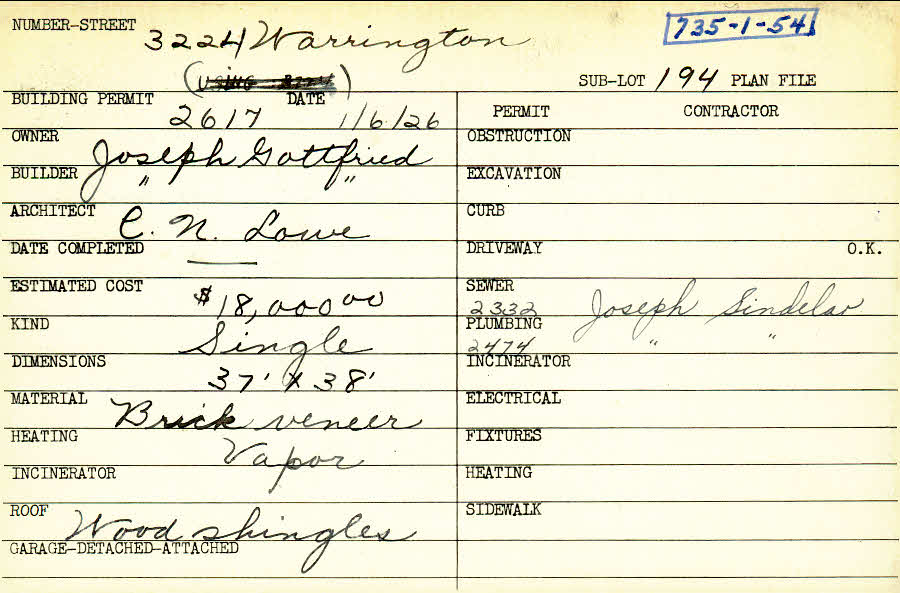 NUMBER-STREET 3224 Warrington 735-1-54
SUB-LOT 194 PLAN FILE
BUILDING PERMIT 2617 DATE 1/6/26
OWNER Joseph Gottfried
BUILDER " "
ARCHITECT C. N. Lowe
DATE COMPLETED —
ESTIMATED COST $18,000 00
KIND Single
DIMENSIONS 37' x 38'
MATERIAL Brick veneer
HEATING Vapor
INCINERATOR
ROOF Wood shingles
GARAGE-DETACHED-ATTACHED
PERMIT CONTRACTOR
OBSTRUCTION
EXCAVATION
CURB
DRIVEWAY O.K.
SEWER 2332 Joseph Sindelar
PLUMBING 2474 " "
INCINERATOR
ELECTRICAL
FIXTURES
HEATING
SIDEWALK